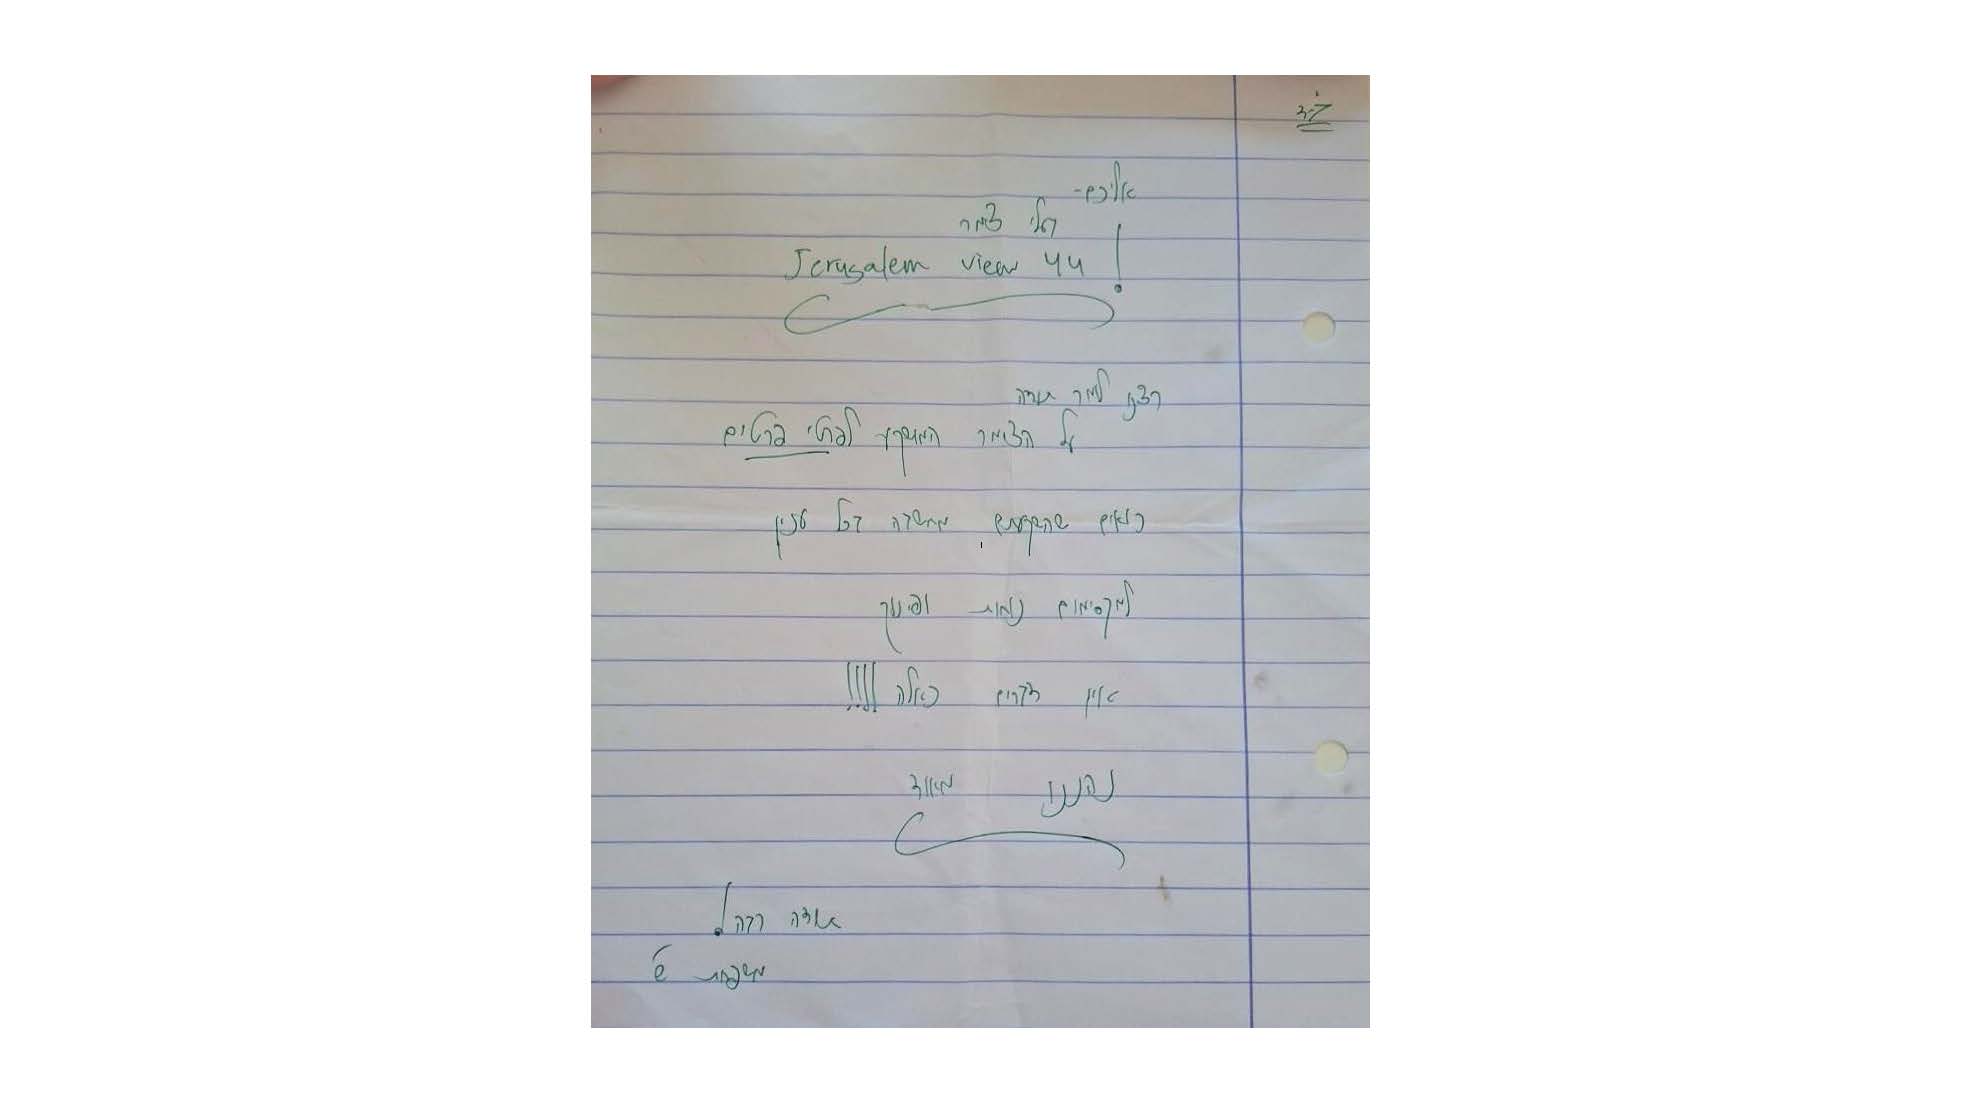 בס"ד
אליכם-
בעלי צימר
Jerusalem view 44!
רצינו לומר תודה
על הצימר המושקע לפרטי פרטים
רואים שהשקעתם מחשבה בכל עניין
למקסימום נוחות ופינוק
אין דברים כאלה!!!!
נהננו מאוד
תודה רבה!
משפחת ש'